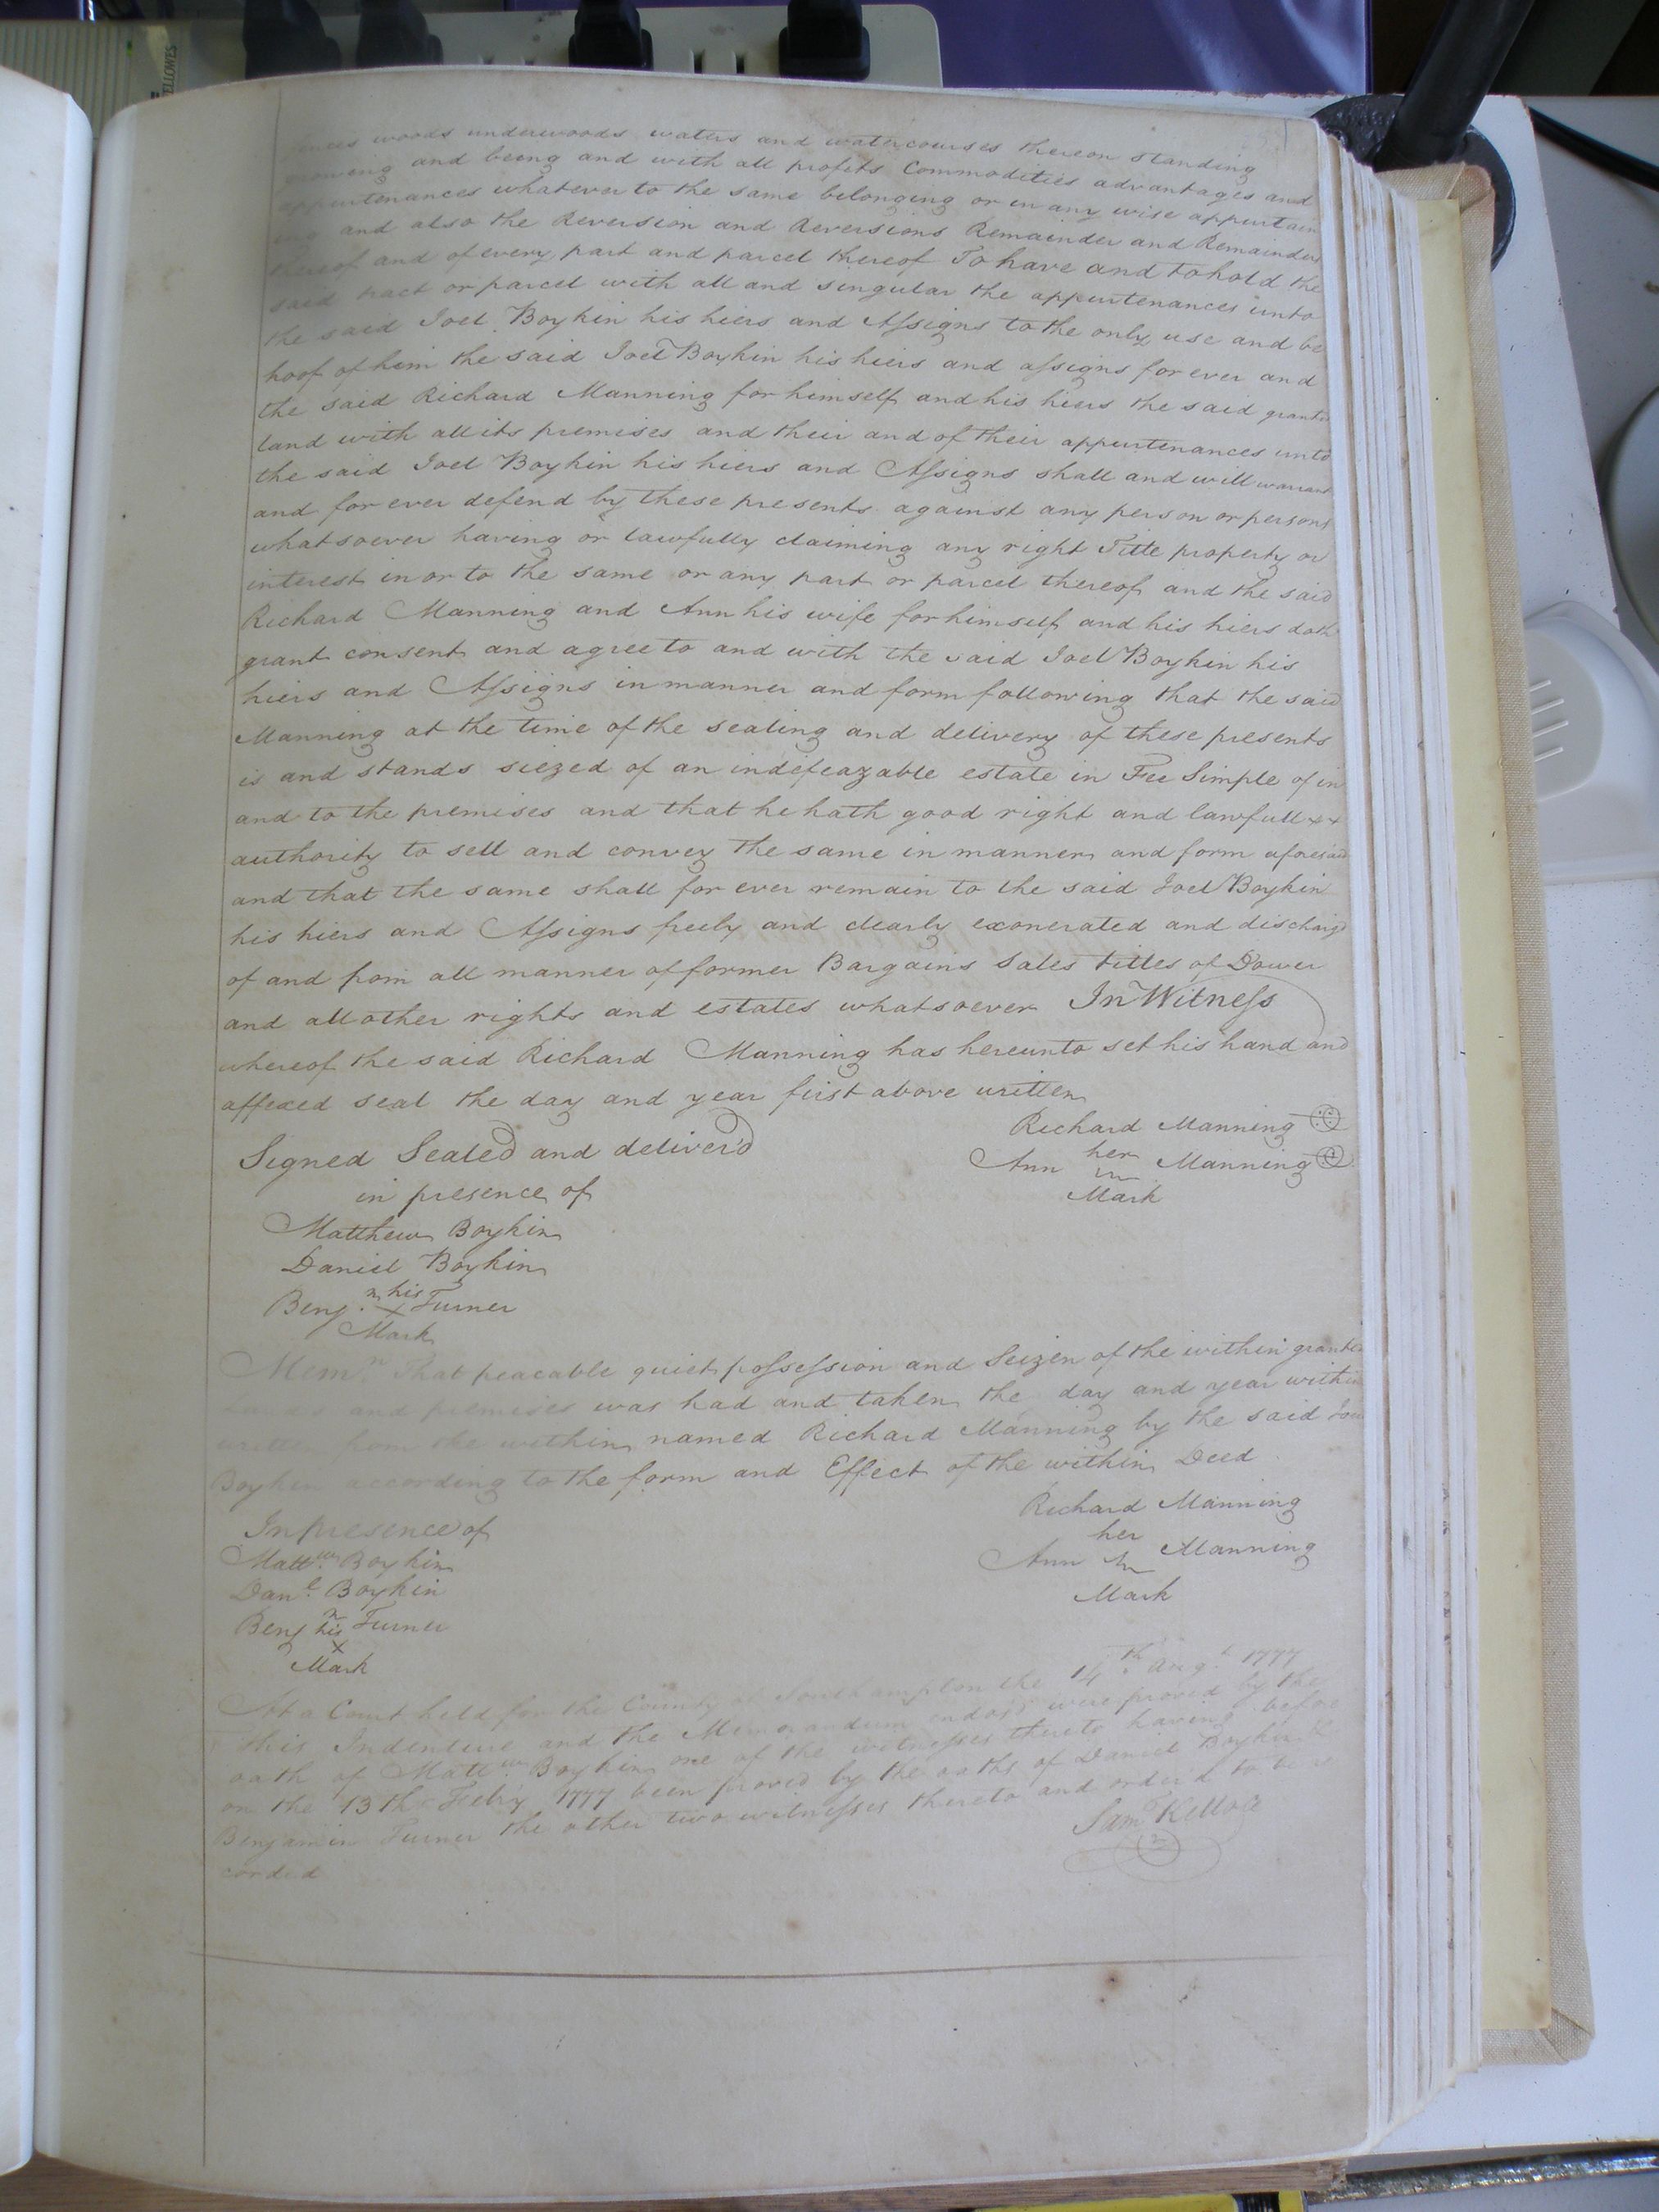 FELLOWES
woods underwoods waters and watercourses thereon standing
growing and being and with all profits Commodities advantages and
appurtenances whatever to the same belonging or in any wise appurtain
ing and also the Reversion and Reversions Remainder and Remainders
thereof and of every part and parcel thereof To have and to hold the
said tract or parcel with all and singular the appurtenances unto
the said Joel Boykin his hiers and Assigns to the only use and be
hoof of him the said Joel Boykin his hiers and assigns for ever and
the said Richard Manning for himself and his hiers the said granted
land with all its premises and their and of their appurtenances unto
the said Joel Boykin his hiers and Assigns shall and will warrant
and for ever defend by these presents against any person or persons
whatsoever having or lawfully claiming any right Title property or
interest in or to the same or any part or parcel thereof and the said
Richard Manning and Ann his wife for himself and his hiers doth
grant consent and agree to and with the said Joel Boykin his
hiers and Assigns in manner and form following that the said
Manning at the time of the sealing and delivery of these presents
is and stands siezed of an indefeazable estate in Fee Simple of in
and to the premises and that he hath good right and lawfull xx
authority to sell and convey the same in manner and form aforesaid
and that the same shall for ever remain to the said Joel Boykin
his hiers and Assigns freely and clearly exonerated and discharg'd
of and from all manner of former Bargains Sales titles of Dower
and all other rights and estates whatsoever In Witness
whereof the said Richard Manning has hereunto set his hand and
affixed seal the day and year first above written
Richard Manning
Signed Sealed and deliver'd
her
Ann Manning
Mark
in presence of
Matthew Boykin
Daniel Boykin
Benj.n his x Turner
Mark
Mem.n That peacable quiet possession and Seizen of the within granted
lands and premises was had and taken the day and year within
written from the within named Richard Manning by the said Joel
Boykin according to the form and Effect of the within Deed
Richard Manning
her
Ann Manning
Mark
In presence of
Matt.w Boykin
Dan.l Boykin
Benj.n his Turner
x
Mark
At a Court held for the County of Southampton the 14.th Aug.t 1777
this Indenture and the Memorandum endors'd were proved by the
oath of Matt.w Boykin one of the witnesses thereto having before
on the 13th Feb'ry 1777 been proved by the oaths of Daniel Boykin &
Benjamin Turner the other two witnesses thereto and order'd to be re
corded
Sam.l Kello C